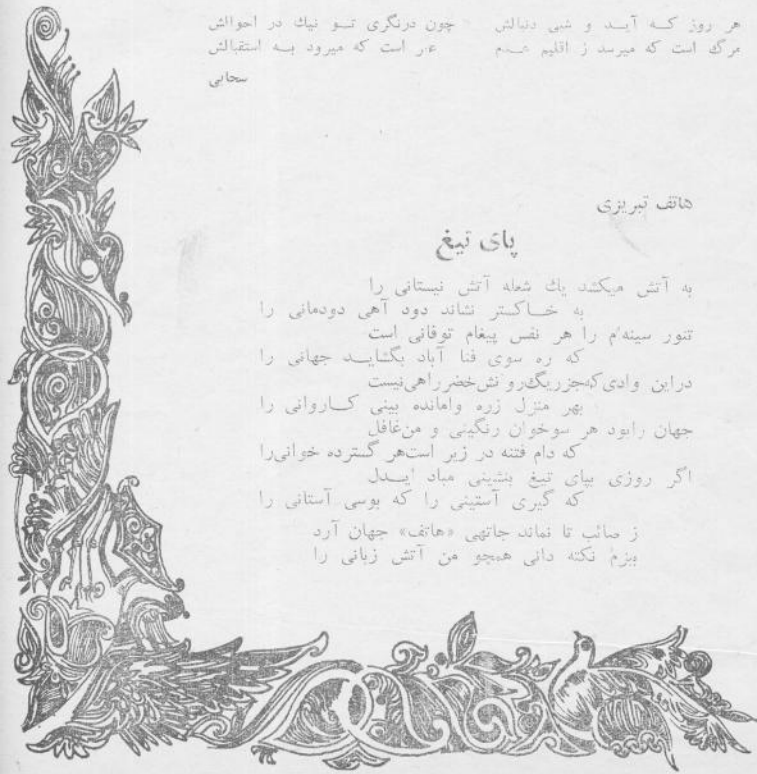 هر روز کــه آیــد و شبی دنبالش چون درنگری تــو نیك در احوالش
مرگ است که میرسد ز اقلیم عــدم عمر است که میرود بــه استقبالش
سحابی
هاتف تبریزی
پای تیغ
به آتش میکشد یك شعله آتش نیستانی را
به خــاکستر نشاند دود آهی دودمانی را
تنور سینه‌ام را هر نفس پیغام توفانی است
که ره سوی فنا آباد بگشایــد جهانی را
دراین وادی‌که‌جزریگ‌روانش‌خضرراهی‌نیست
بهر منزل زره وامانده بینی کــاروانی را
جهان رابود هر سوخوان رنگینی و من‌غافل
که دام فتنه در زیر است‌هر گسترده خوانی‌را
اگر روزی بپای تیغ بنشینی مباد ایــدل
که گیری آستینی را که بوسی آستانی را
ز صائب تا نماند جاتهی «هاتف» جهان آرد
ببزم نکته دانی همچو من آتش زبانی را